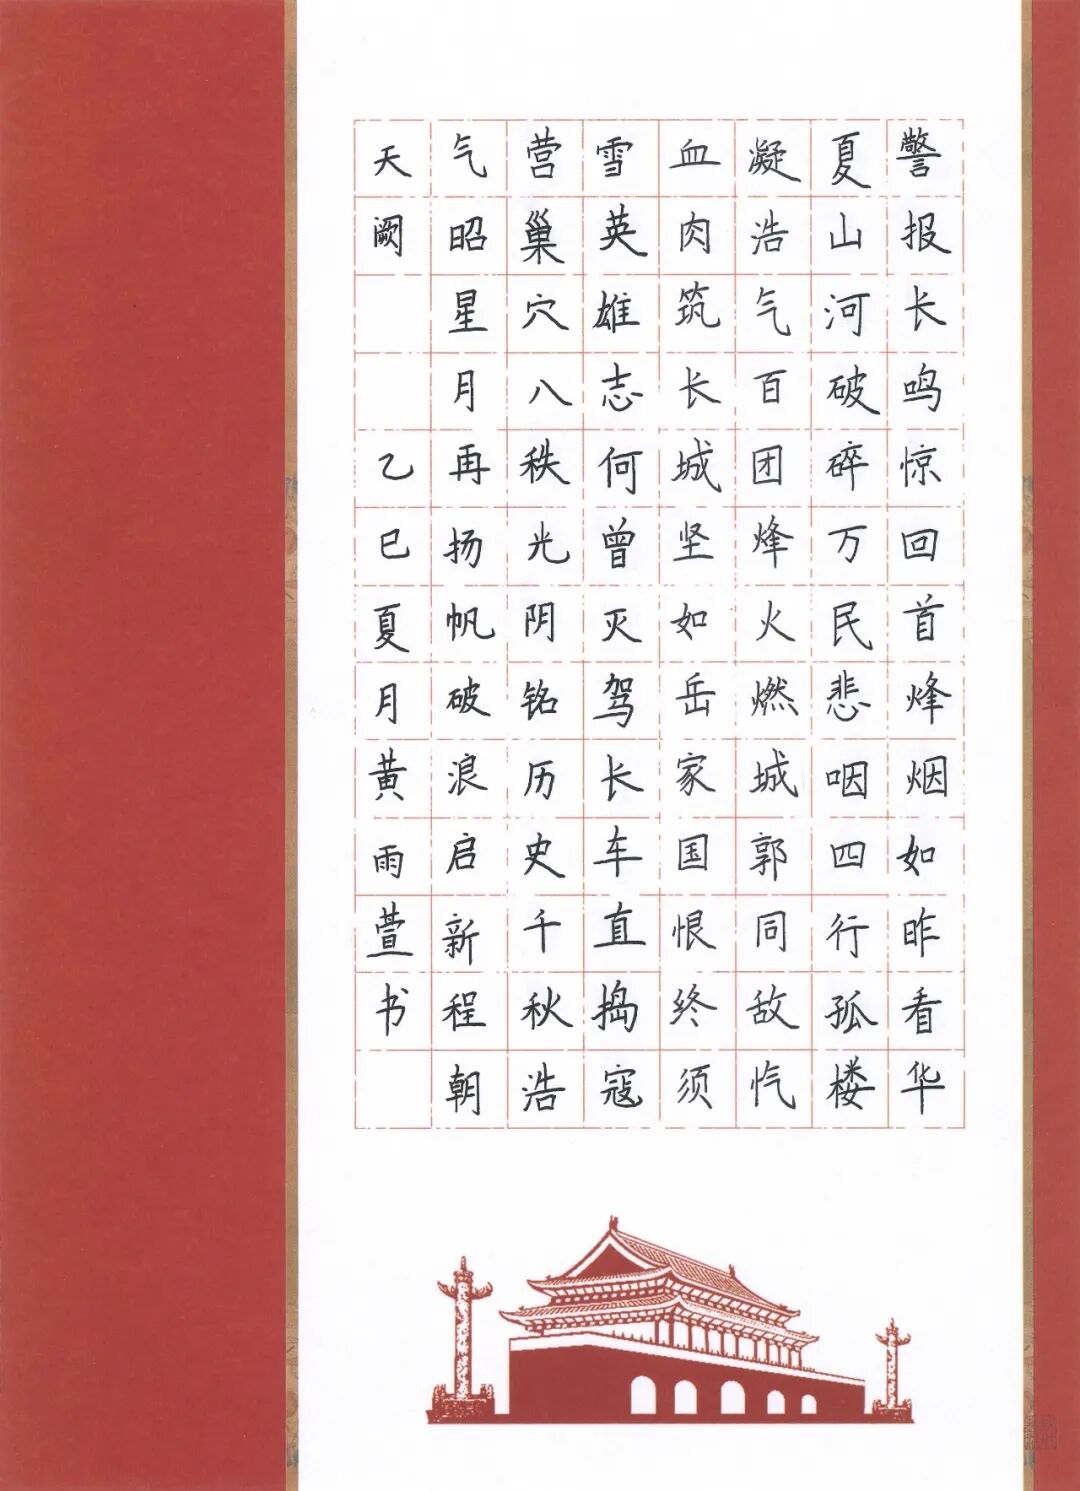 警报长鸣惊回首烽烟如昨看华
夏山河破碎万民悲咽四行孤楼
凝浩气百团烽火燃城郭同敌忾
血肉筑长城坚如岳家国恨终须
雪英雄志何曾灭驾长车直捣寇
营巢穴八秩光阴铭历史千秋浩
气昭星月再扬帆破浪启新程朝
天阙
乙巳夏月黄雨萱书